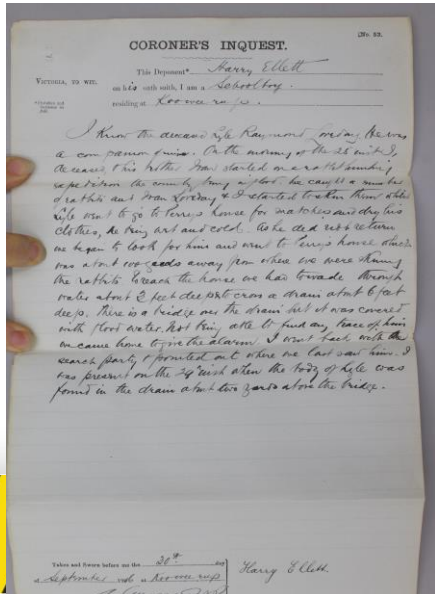 [No. 23.
CORONER'S INQUEST.
This Deponent Harry Ellett
VICTORIA, TO WIT.
on his oath saith, I am a Schoolboy
residing at Koo wee rup.
I Know the deceased Lyle Raymond Loveday He was
a companion of mine. On the morning of the 28 inst I,
deceased, & his brother Ivan started on a rabbit hunting
expedition the country being in flood. We caught a number
of rabbits and Ivan Loveday & I started to skin them while
Lyle went to go to Perrys house for matches and dry his
clothes, he being wet and cold. As he did not return
we began to look for him and went to Perrys house which
was about 200 yards away from where we were skinning
the rabbits. To reach the house we had to wade through
water about 2 feet deep & to cross a drain about 6 feet
deep. There is a bridge over the drain but it was covered
with flood water. Not being able to find any trace of him
we came home to give the alarm. I went back with the
search party & pointed out where we last saw him. I
was present on the 29th inst when the body of Lyle was
found in the drain about two yards above the bridge.
Taken and Sworn before me the 30th day
of September at Koo wee rup
Harry Ellett